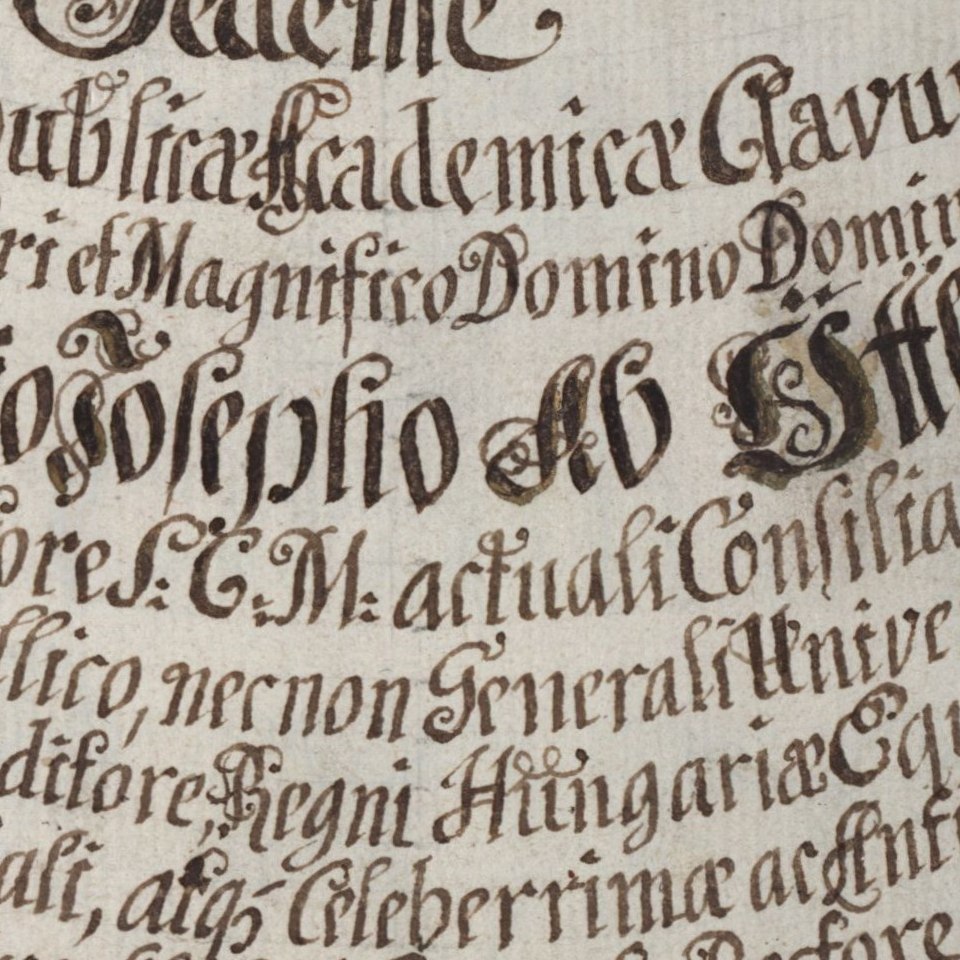 ublicæ Academicæ Clavu
ri et Magnifico Domino Domin
o Josepho Ab
ore S: C: M: actuali Consilia
llico, necnon Generali Unive
ditore, Regni Hungariæ Equ
ali, atq; Celeberrimæ ac Anti